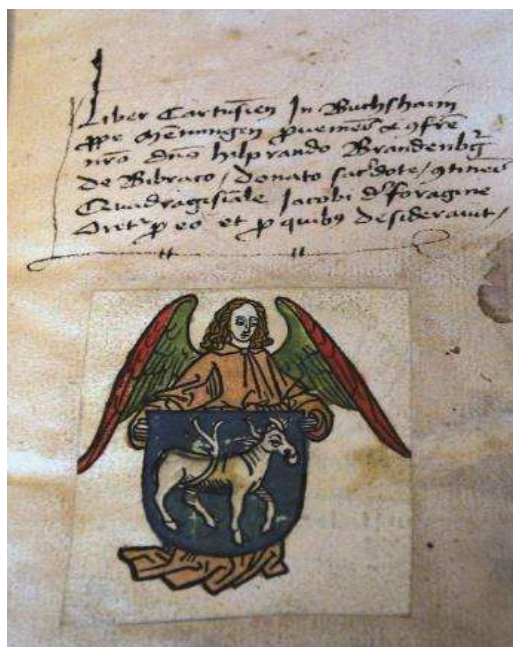 Liber Cartusien̄ In Buchshaim
ꝓpe Mēmingen ꝓueniēs a ꝯfrē
nr̄o dn̄o hilprando Brandenbg̃
de Bibraco / donato sac̕dote / ꝯtinēs
Quadragesīale Jacobi d̕ foragine
Oret̃ ꝓ eo et ꝓ quibꝰ desiderauit /